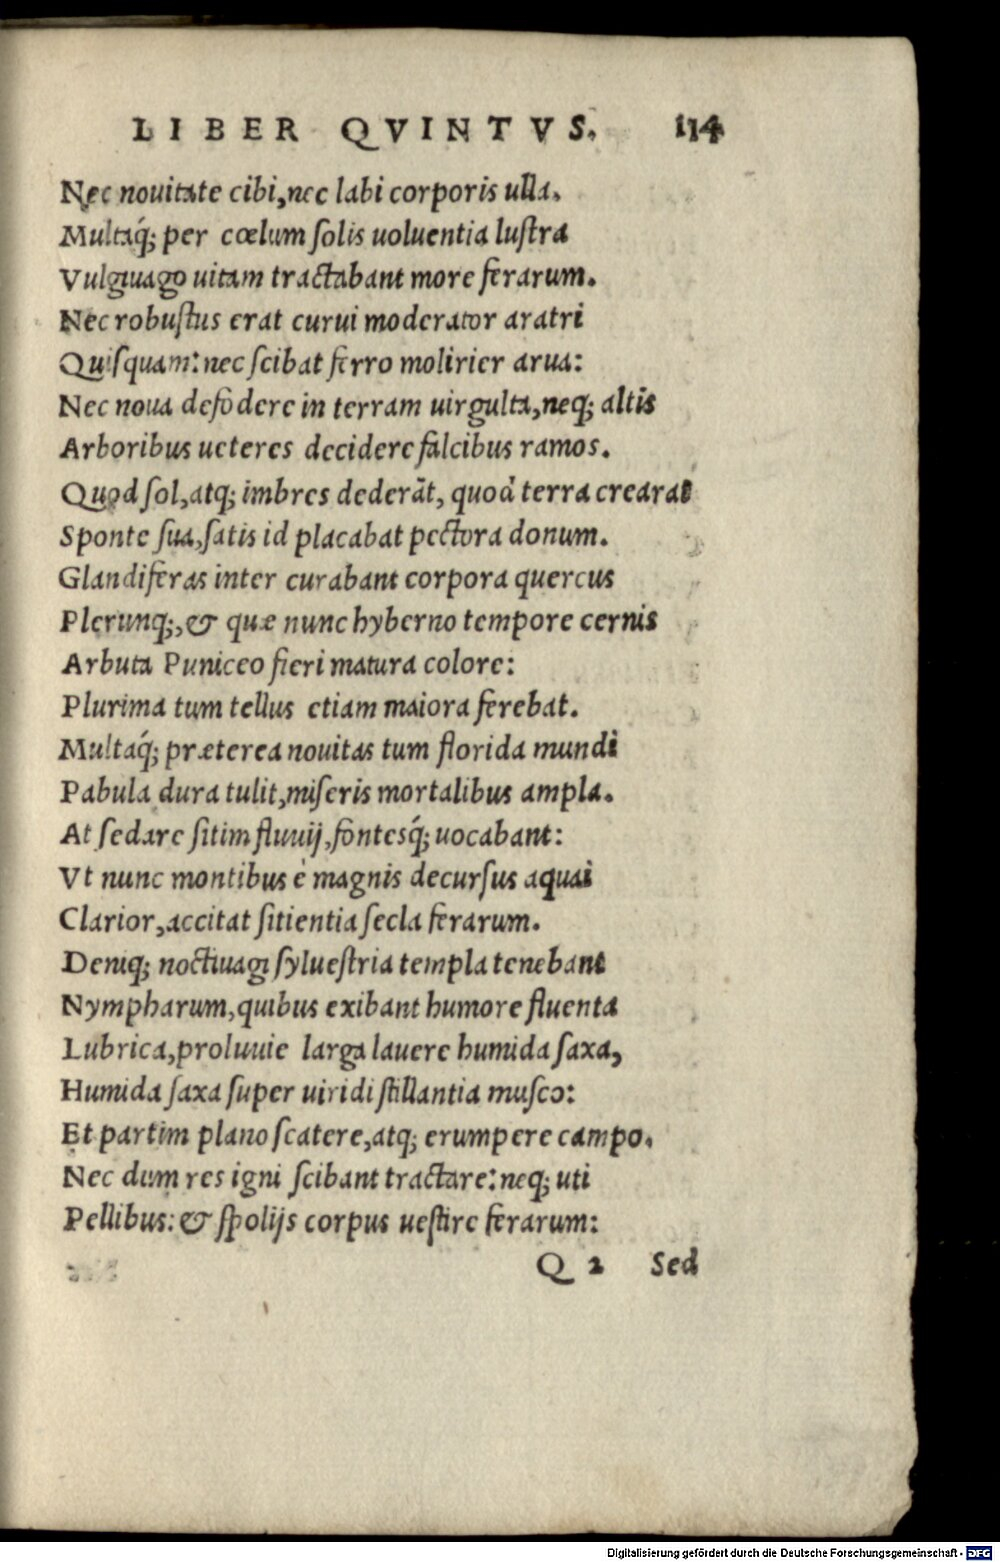 LIBER QVINTVS. 114
Nec nouitate cibi, nec labi corporis ulla.
Multaq́; per cœlum ſolis uoluentia luſtra
Vulgiuago uitam tractabant more ferarum.
Nec robuſtus erat curui moderator aratri
Quiſquam: nec ſcibat ferro molirier arua:
Nec noua defodere in terram uirgulta, neq; altis
Arboribus ueteres decidere falcibus ramos.
Quod ſol, atq; imbres dederāt, quod terra crearat
Sponte ſua, ſatis id placabat pectora donum.
Glandiferas inter curabant corpora quercus
Plerunq;, & quæ nunc hyberno tempore cernis
Arbuta Puniceo fieri matura colore:
Plurima tum tellus etiam maiora ferebat.
Multaq́; præterea nouitas tum florida mundi
Pabula dura tulit, miſeris mortalibus ampla.
At ſedare ſitim fluuij, fontesq́; uocabant:
Vt nunc montibus è magnis decurſus aquai
Clarior, accitat ſitientia ſecla ferarum.
Deniq; noctiuagi ſylueſtria templa tenebant
Nympharum, quibus exibant humore fluenta
Lubrica, proluuie larga lauere humida ſaxa,
Humida ſaxa ſuper uiridi ſtillantia muſco:
Et partim plano ſcatere, atq; erumpere campo.
Nec dum res igni ſcibant tractare: neq; uti
Pellibus: & ſpolijs corpus ueſtire ferarum:
Q 2 Sed
Digitalisierung gefördert durch die Deutsche Forschungsgemeinschaft - DFG